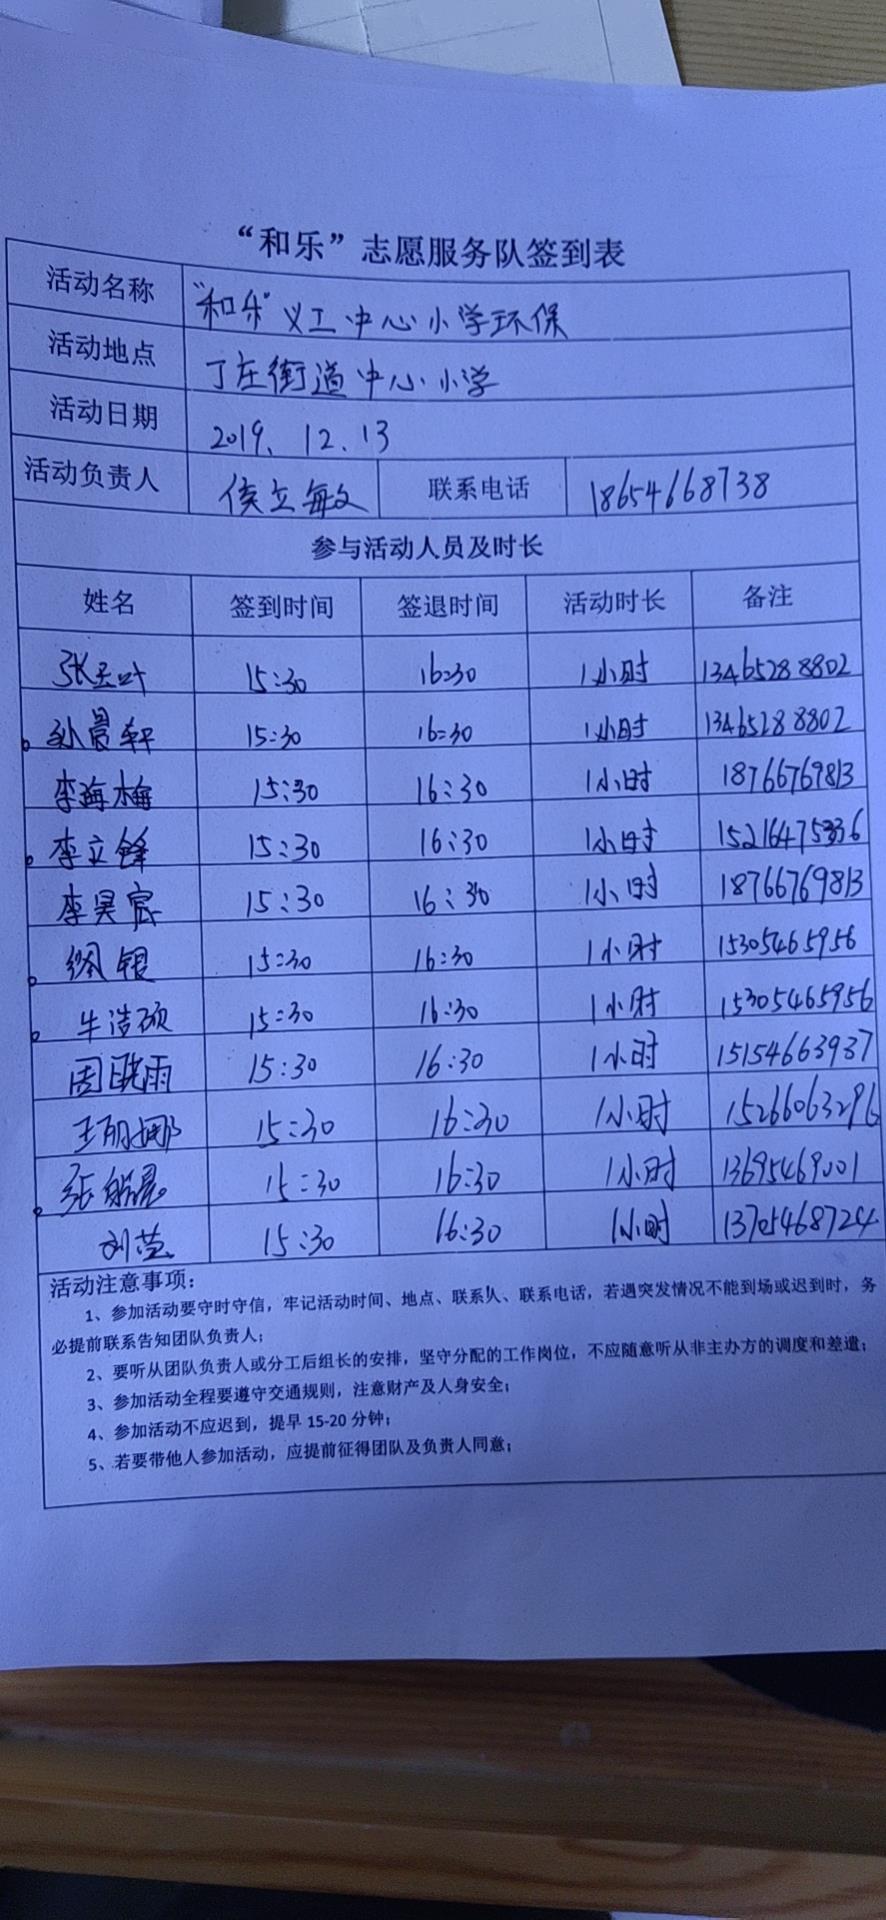 “和乐”志愿服务队签到表
活动名称 “和乐”义工中心小学环保
活动地点 丁庄街道中心小学
活动日期 2019.12.13
活动负责人 侯立敏 联系电话 18654668738
参与活动人员及时长
姓名 签到时间 签退时间 活动时长 备注
张玉叶 15:30 16:30 1小时 13465288802
孙晨轩 15:30 16:30 1小时 13465288802
李海梅 15:30 16:30 1小时 18766769813
李立锋 15:30 16:30 1小时
李昊宸 15:30 16:30 1小时 18766769813
银 15:30 16:30 1小时 15305465956
牛浩硕 15:30 16:30 1小时 15305465956
周雨 15:30 16:30 1小时 15154663937
王丽娜 15:30 16:30 1小时 15266063296
张晨 15:30 16:30 1小时 13695469001
刘莹 15:30 16:30 1小时 13705468724
活动注意事项：
1、参加活动要守时守信，牢记活动时间、地点、联系人、联系电话，若遇突发情况不能到场或迟到时，务
必提前联系告知团队负责人；
2、要听从团队负责人或分工后组长的安排，坚守分配的工作岗位，不应随意听从非主办方的调度和差遣；
3、参加活动全程要遵守交通规则，注意财产及人身安全；
4、参加活动不应迟到，提早15-20分钟；
5、若要带他人参加活动，应提前征得团队及负责人同意；